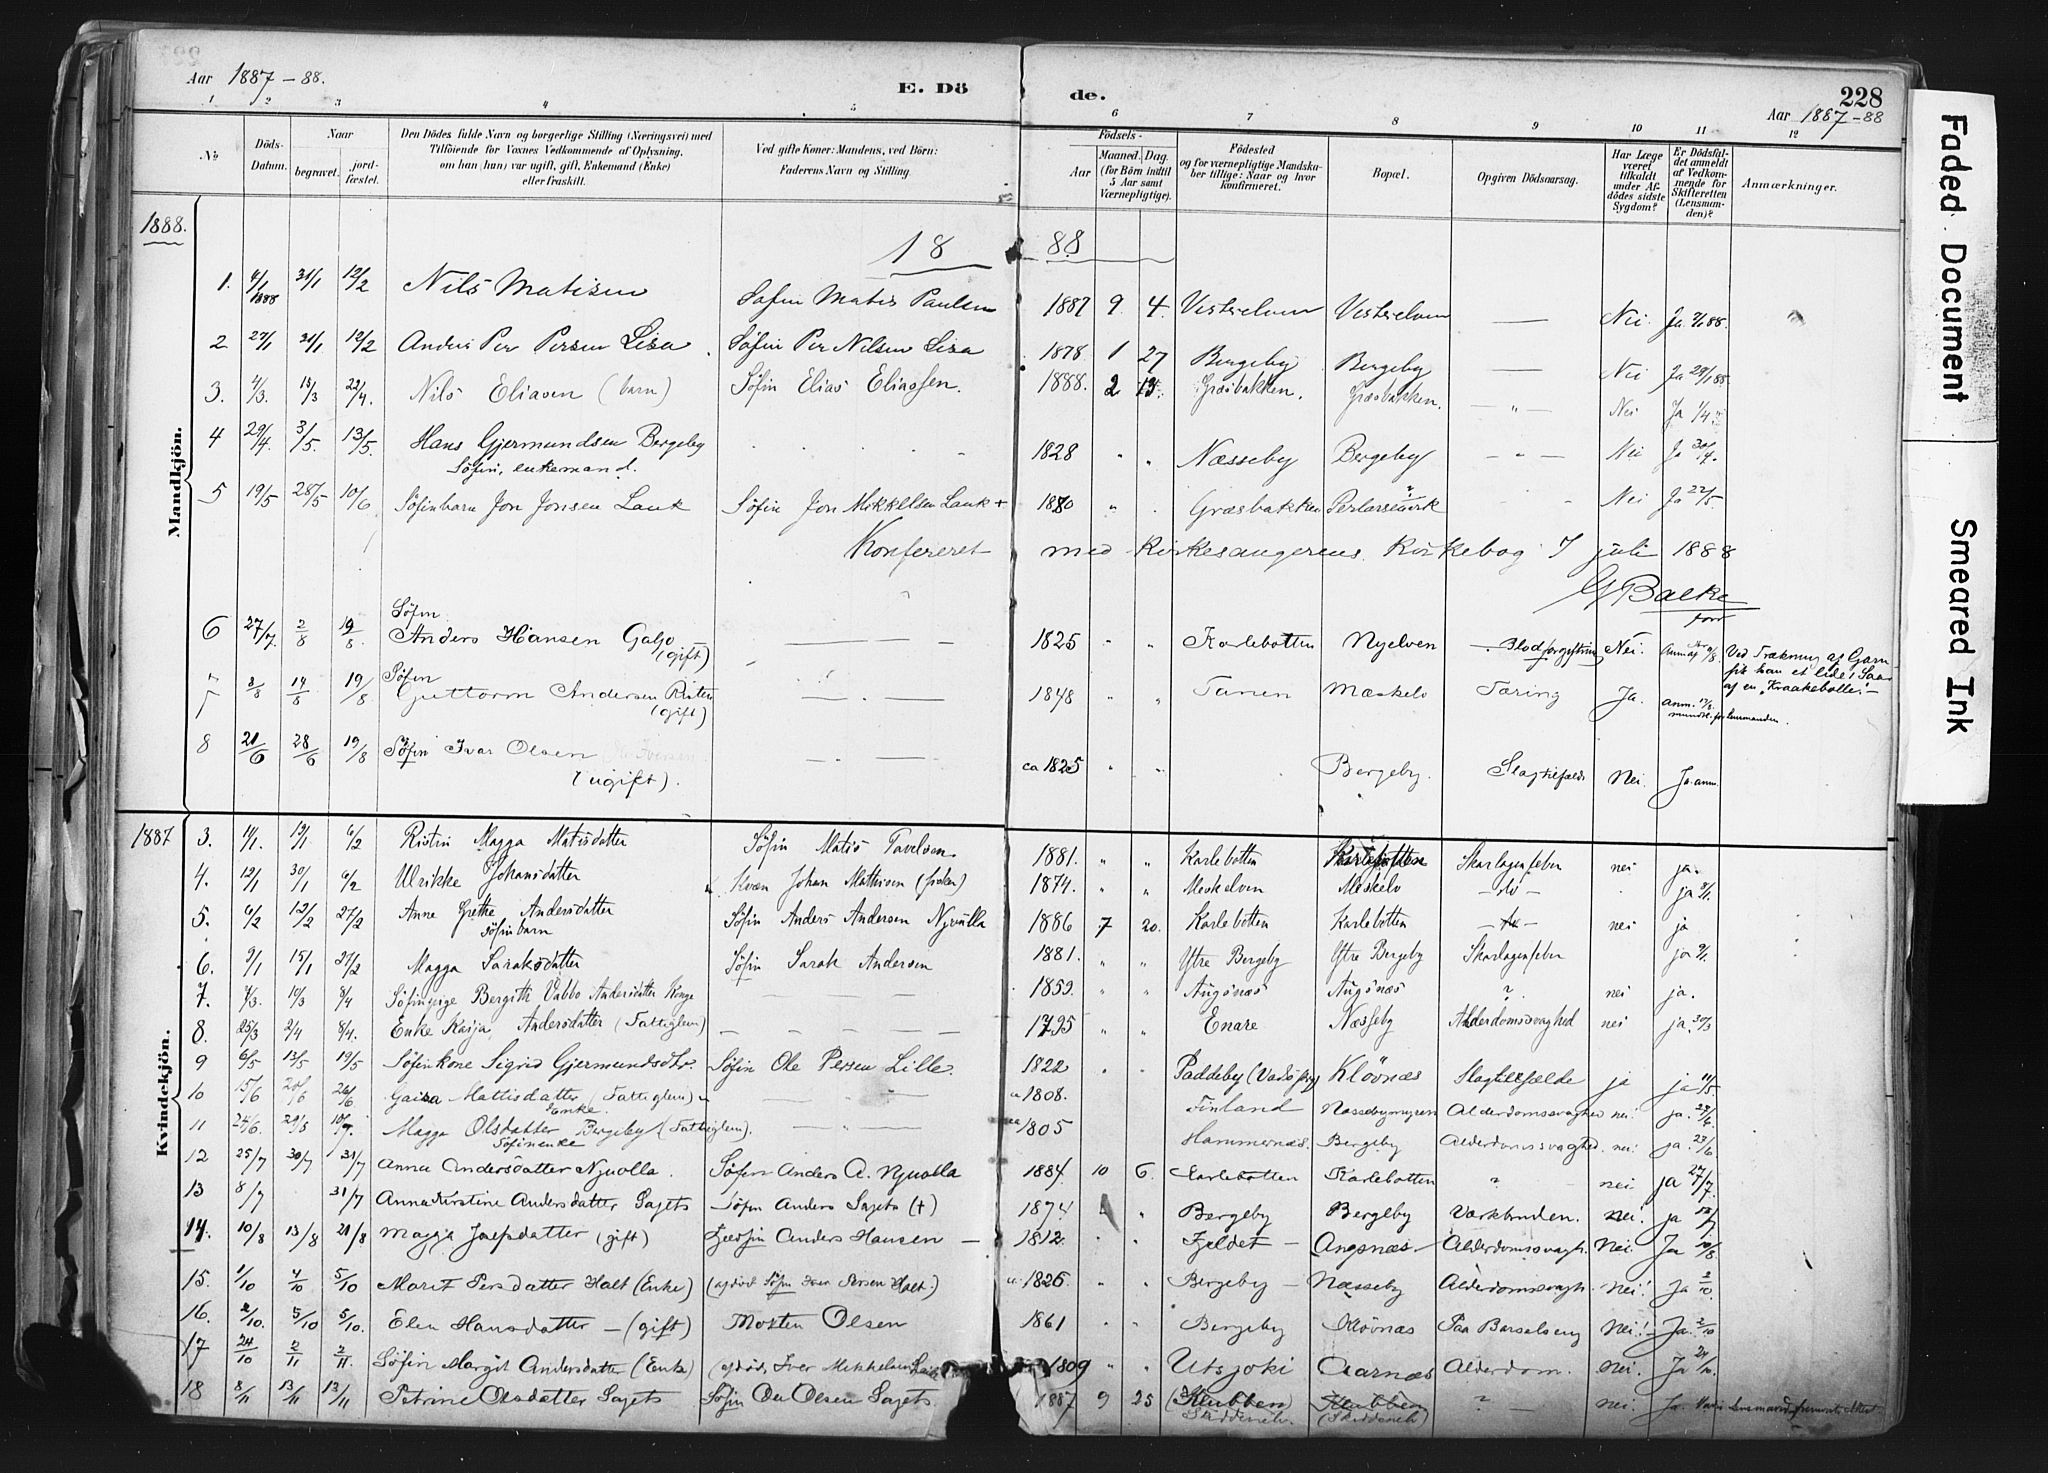 Aar 1887-88.
E. Döde.
228
Aar 1887-88
1 2 3 4 5 6 7 8 9 10 11 12
No
Döds-Datum.
Naar
begravet.
jord-fæstet.
Den Dödes fulde Navn og borgerlige Stilling (Næringsvei) med
Tilföiende for Voxnes Vedkommende af Oplysning,
om han (hun) var ugift, gift, Enkemand (Enke)
eller fraskilt.
Ved gifte Koner: Mandens, ved Börn:
Faderens Navn og Stilling.
Födsels-
Aar
Maaned. Dag.
(for Börn indtil
5 Aar samt
Værnepligtige).
Födested
og for værnepligtige Mandska-
ber tillige: Naar og hvor
konfirmeret.
Bopæl.
Opgiven Dödsaarsag.
Har Læge
været
tilkaldt
under Af-
dödes sidste
Sygdom?
Er Dödsfal-
det anmeldt
af Vedkom-
mende for
Skifteretten
(Lensman-
den)?
Anmærkninger.
1888.
1888
Mandkjön.
1. 4/1 1888 31/1 12/2 Nils Matisen Søfin Matis Paulsen 1887 9. 4. Vesterelven Vesterelven — Nei. Ja
2 27/1 31/1 12/2 Anders Per Persen Lisa Søfin Per Nilsen Lisa 1878. 1 27 Bergeby Bergeby — Nei Ja 29/1 88.
3. 4/3. 18/3 22/4. Nils Eliasen (barn) Søfin Elias Eliassen. 1888. 2 Græsbakken. Græsbakken. — " — Nei Ja 1/4
4 29/4. 3/5. 13/5. Hans Gjermundsen Bergeby
Søfin, enkemand. 1828 " " Næsseby Bergeby — " — Nei Ja 30/4.
5 19/5 28/5 10/6 Søfinbarn Jon Jonsen Lauk Søfin Jon Mikkelsen Lauk + 1880 " Græsbakken Nei Ja 22/5
Konfereret med Kirkesangerens Kirkebog 7 juli 1888
G Balke
6 27/7. 2/8 19/8. Søfin
Anders Hansen Galjo
(gift) — — 1825 " " Karlebotten Nyelven Blodforgiftning Nei.
Ved Trækning af Garn
fik han et lidet Saar
af en "Kraakebolle".
7 8/8 14/8 19/8 Søfin
Guttorm Andersen
(gift) — " — 1848 " Tanen Mæskelv Tæring Ja. anm.
8 21/6 28/6 19/8 Søfin Ivar Olsen
(ugift). — " — ca 1825 " " Bergeby. Slagtilfælde Nei. Ja. anm.
1887
Kvindekjön.
3. 11/1. 19/1 6/2 Kistin Magga Matisdatter Søfin Matis Pavelsen. 1881. " " Karlebotten Karlebotten Skarlagensfeber nei ja.
4. 12/1 30/1 6/2 Ulrikke Johansdatter Kvæn Johan Mathisen 1874. " " Meskelven Meskelv — do — ja
5. 6/2 12/2 27/2 Anne Grethe Andersdatter
Søfinbarn Søfin Anders Andersen Njuolla 1886 7 20. Karlebotten Karlebotten nei ja
6. 9/1 15/1 27/2 Magga Saraksdatter Søfin Sarak Andersen 1881. " " Ytre Bergeby Ytre Bergeby Skarlagensfeber ja
7. 7/3. 10/3 8/4 Søfinpige Bergith Vabbo Andersdatter — 1859. " " Augsnæs Augsnæs ? nei ja.
8. 25/3 2/4 8/4. Enke Kaija Andersdatter (Fattiglem) — 1795 " " Enare Næsseby Alderdomssvaghed nei ja. 30/3
9 6/5 13/5 19/5 Søfinkone Sigrid Gjermundsdtr. Søfin Ole Persen Lille. 1822 " Paddeby Kløvnæs Slagtilfælde ja ja 11/5.
10 15/6 20/6 26/6 Gaisa Mattisdatter (Fattiglem)
Enke. — " — 1808. Finland Næssebymyren Alderdomssvaghed nei! ja.
11 24/6. 29/6 10/7. Magga Olsdatter Bergeby (Fattiglem).
Søfinenke — " — ca 1805 Hammernæs. Bergeby Alderdomssvaghed nei! ja
12 25/7 30/7 31/7 Anna Andersdatter Njuolla. Søfin Anders A. Njuolla 1884 10 6. Karlebotten Karlebotten ? nei ja 27/7.
13 8/7 31/7 Anna Kirstine Andersdatter Sajets Søfin Anders Sajets (+) 1874 " " Bergeby Bergeby Værkbruden. nei. ja
14. 10/8 13/8 21/8 Magga Josefsdatter (gift) Fjeldfin Anders Hansen — 1812 " " Fjeldet — Angsnæs Alderdomssvagh. Nei. Ja 10/8
15. 1/10 4/10 5/10 Marit Persdatter Halt (Enke) (afdød Søfin Iver Persen Halt.) ca 1826. " " Bergeby — Næsseby Alderdomssvagh. Nei! Ja 2/10.
16. 2/10. 5/10 5/10. Elen Hansdatter — (gift) Morten Olsen 1861 " " Bergeby Kløvnæs Paa Barselseng Nei! Ja. 2/10
17 24/10 2/11 2/11. Søfin Margit Andersdatter (Enke) (afdød, Iver Mikkelsen 1809 " " Utsjoki Aarnæs Alderdom. Nei. Ja
18 8/11 13/11 13/11 Petrine Olsdatter Sajets Søfin Ole Olsen Sajets 1887 9 25 (Klubben)
Skiddenelv. Klubben
(Skiddenelv) ? — nei. Ja.
Faded Document
Smeared Ink